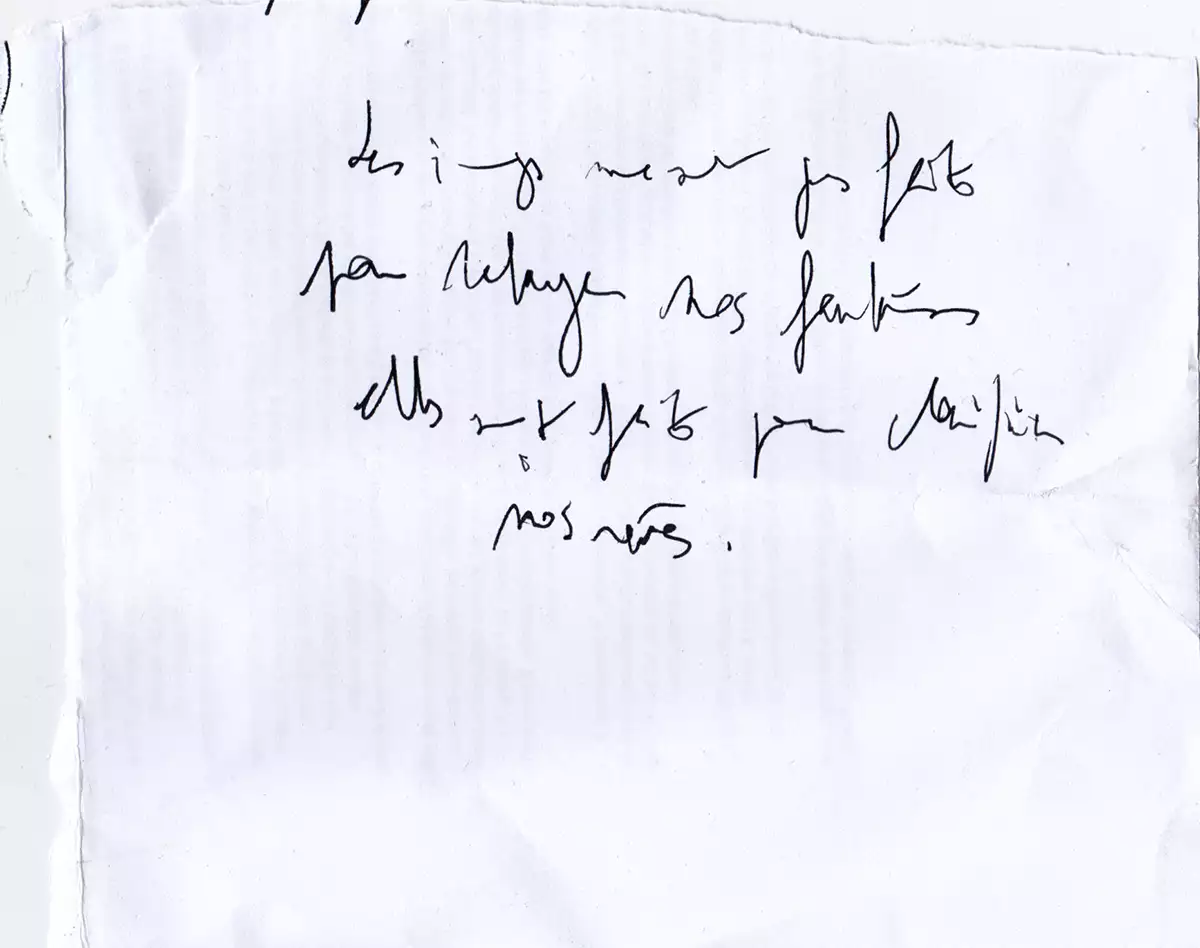 Les images ne sont pas faites
pour refuger nos fantômes
elles sont faites pour clarifier
nos rêves.